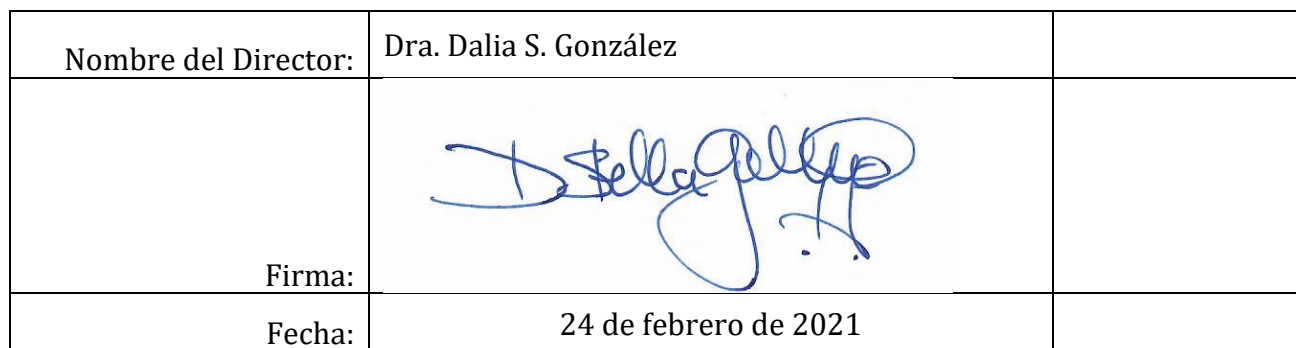 Nombre del Director: Dra. Dalia S. González
Firma:
Fecha: 24 de febrero de 2021